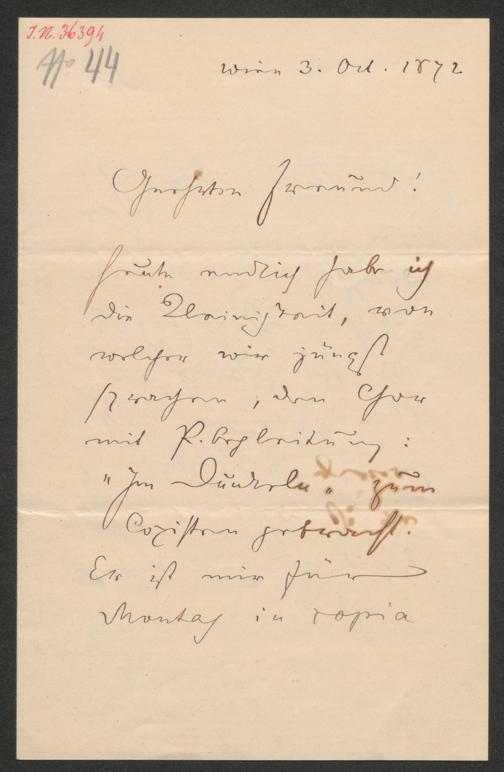 J.N. 36394
No 44
Wien 3. Oct. 1872
Geehrter Freund!
Heute endlich habe ich
die Kleinigkeit, von
welcher wir jüngst
sprachen, den Chor
mit P.begleitung:
"Im Dunkeln" zum
Copisten gebracht.
Er ist mir für
Montag in copia